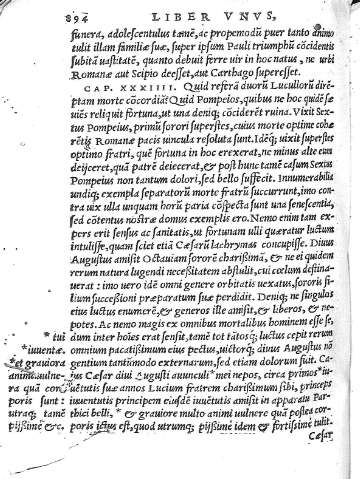 894 LIBER VNVS,
funera, adolescentulus tamē, ac propemodū puer tanto animo
tulit illam familiæ suæ, super ipsum Pauli triumphū cōcidentis
subitā uastitatē, quanto debuit ferre uir in hoc natus, ne urbi
Romanæ aut Scipio deesset, aut Carthago superesset.
CAP. XXXIIII. Quid referā duorū Luculiorū dirē-
ptam morte cōcordiā? Quid Pompeios, quibus ne hoc quidē sæ
uiēs reliquit fortuna, ut una deniq; cōciderēt ruina. Vixit Sex
tus Pompeius, primū sorori superstes, cuius morte optime cohæ
rētis Romanæ pacis uincula resoluta sunt. Idēq; uixit superstes
optimo fratri, quē fortuna in hoc erexerat, ne minus alte eum
deijceret, quā patrē deiecerat, & post hunc tamē casum Sextus
Pompeius non tantum dolori, sed bello suffecit. Innumerabilia
undiq; exempla separatorū morte fratrū succurrunt, imo con-
tra uix ulla unquam horū paria cōspecta sunt una senescentia,
sed cōtentus nostræ domus exemplis ero. Nemo enim tam ex-
pers erit sensus ac sanitatis, ut fortunam ulli queratur luctum
intulisse, quam sciet etiā Cæsarū lachrymas concupisse. Diuus
Augustus amisit Octauiam sororē charissimā, & ne ei quidem
rerum natura lugendi necessitatem abstulit, cui cœlum destina-
uerat: imo uero idē omni genere orbitatis uexatus, sororis fi-
lium successioni præparatum suæ perdidit. Deniq; ne singulos
eius luctus enumerē, & generos ille amisit, & liberos, & ne-
potes. Ac nemo magis ex omnibus mortalibus hominem esse se,
* iui dum inter hōies erat sensit, tamē tot tātosq; luctus cepit rerum
iuuentæ. omnium pacatissimum eius pectus, uictorq; diuus Augustus nō
*et grauiora gentium tantūmodo externarum, sed etiam dolorum fuit. Ca-
animi uulne- ius Cæsar diui Augusti auunculi mei nepos, circa primos *iuu
ra quā cor uētutis suæ annos Lucium fratrem charissimum sibi, princeps
poris sunt: iuuentutis principem eiusdē iuuētutis amisit in apparatu Par-
utraq; tamē thici belli, * & grauiore multo animi uulnere quā postea cor-
pijssime &c. poris ictus est, quod utrumq; pijssime idem & fortissime tulit.
Cæsar